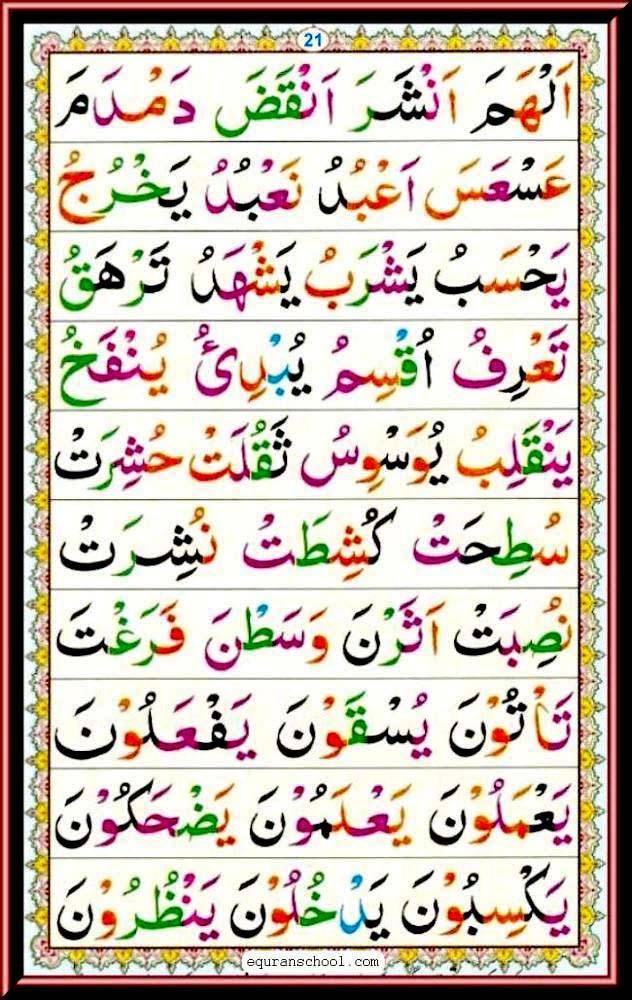 21
اَلْهَمَ اَنْشَرَ اَنْقَضَ دَمْدَمَ
عَسْعَسَ اَعْبُدُ نَعْبُدُ يَخْرُجُ
يَحْسَبُ يَشْرَبُ يَشْهَدُ تَرْهَقُ
تَعْرِفُ اُقْسِمُ يُبْدِئُ يُنْفَخُ
يَنْقَلِبُ يُوَسْوِسُ ثَقُلَتْ حُشِرَتْ
سُطِحَتْ كُشِطَتْ نُشِرَتْ
نُصِبَتْ اَثَرْنَ وَسَطْنَ فَرَغْتَ
تَأْتُوْنَ يُسْقَوْنَ يَفْعَلُوْنَ
يَعْمَلُوْنَ يَعْلَمُوْنَ يَضْحَكُوْنَ
يَكْسِبُوْنَ يَدْخُلُوْنَ يَنْظُرُوْنَ
equranschool.com